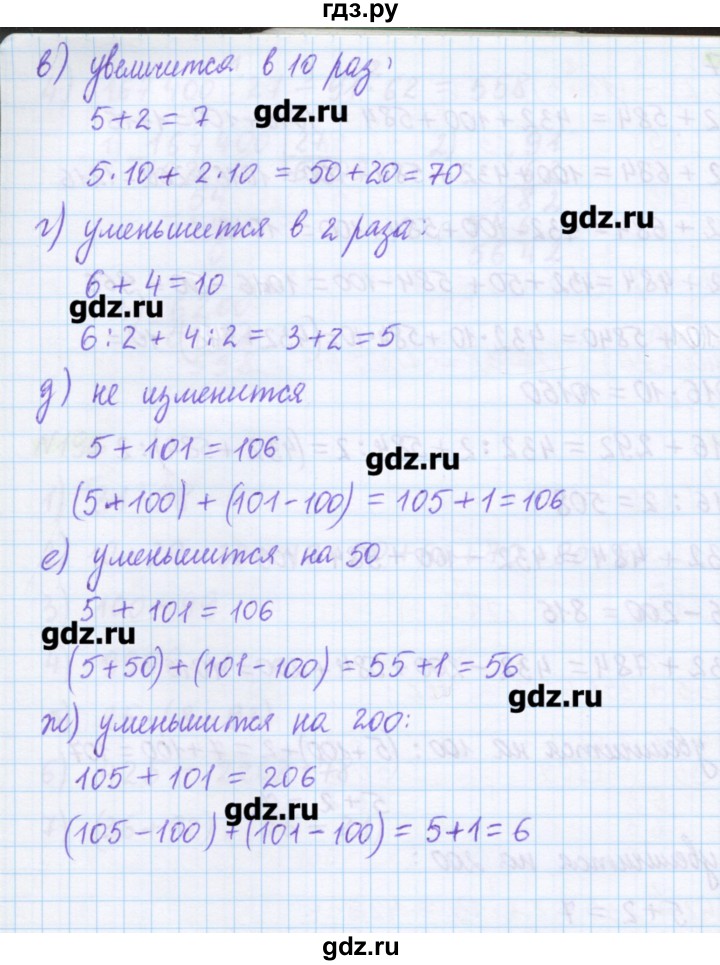 гдз.ру
в) увеличится в 10 раз:
5+2=7
gdz.ru
5·10+2·10=50+20=70
г) уменьшится в 2 раза:
gdz.ru
6+4=10
gdz.ru
6:2+4:2=3+2=5
д) не изменится
5+101=106
gdz.ru
(5+100)+(101-100)=105+1=106
е) уменьшится на 50
5+101=106
gdz.ru
(5+50)+(101-100)=55+1=56
gdz.ru
ж) уменьшится на 200:
105+101=206
gdz.ru
(105-100)+(101-100)=5+1=6
gdz.ru